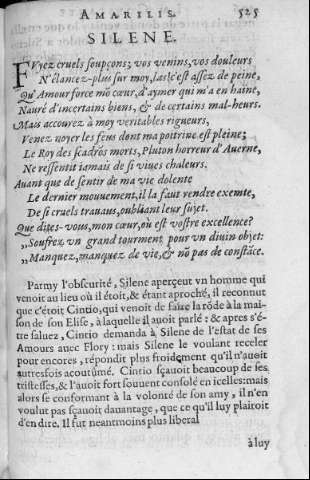 AMARILIS. 525
SILENE.
FVyez cruels soupçons; vos venins, vos douleurs
N'élancez-plus sur moy, las! c'est assez de peine,
Qu'Amour force mõ cœur, d'aymer qui m'a en haine,
Nauré d'incertains biens, & de certains mal-heurs.
Mais accourez à moy veritables rigueurs,
Venez noyer les feus dont ma poitrine est pleine;
Le Roy des escadrõs morts, Pluton horreur d'Auerne,
Ne ressentit iamais de si viues chaleurs.
Auant que de sentir de ma vie dolente
Le dernier mouuement, il la faut rendre exemte,
De si cruels trauaus, oubliant leur sujet.
Que dites-vous, mon cœur, où est vostre excellence?
„Soufrez vn grand tourment pour vn diuin objet:
„Manquez, manquez de vie, & nõ pas de constãce.
Parmy l'obscurité, Silene aperçeut vn homme qui
venoit au lieu où il étoit, & étant aproché, il reconnut
que c'étoit Cintio, qui venoit de faire la rõde à la mai-
son de son Elise, à laquelle il auoit parlé: & apres s'é-
tre saluez, Cintio demanda à Silene de l'estat de ses
Amours auec Flory: mais Silene le voulant receler
pour encores, répondit plus froidement qu'il n'auoit
autresfois acoutumé. Cintio sçauoit beaucoup de ses
tristesses, & l'auoit fort souuent consolé en icelles: mais
alors se conformant à la volonté de son amy, il n'en
voulut pas sçauoir dauantage, que ce qu'il luy plairoit
d'en dire. Il fut neantmoins plus liberal
à luy